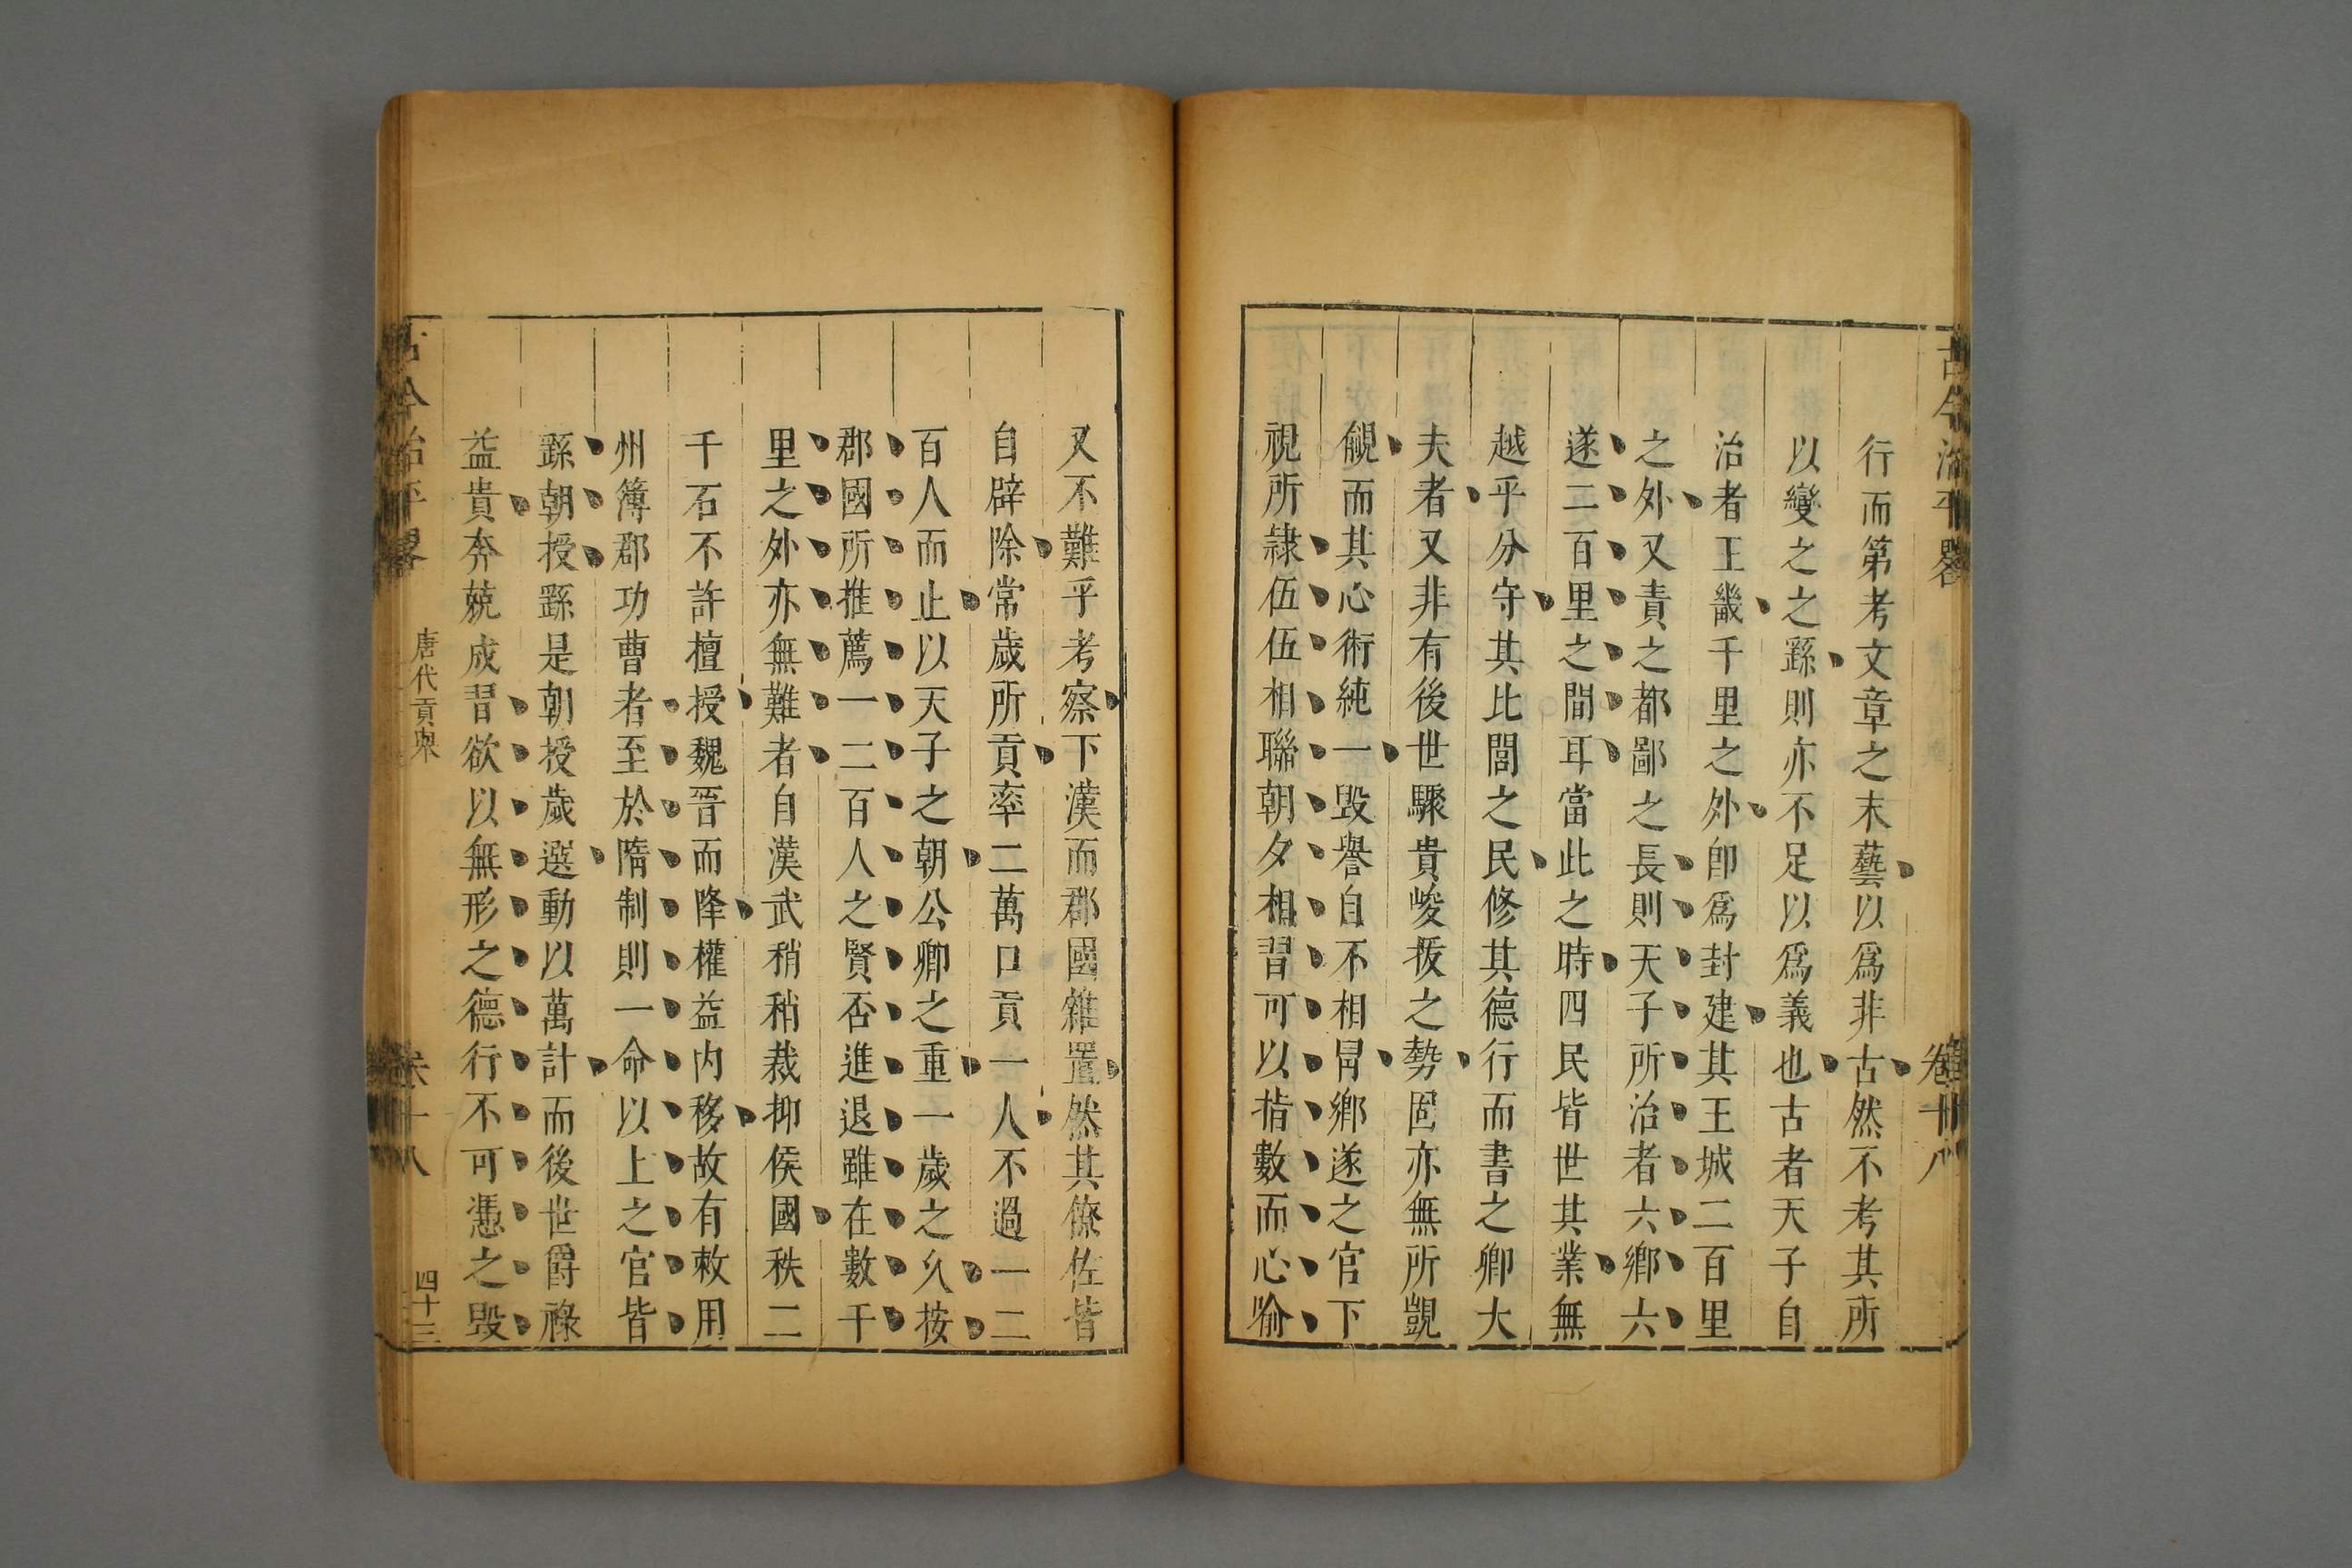 古今治平畧
卷十八
行而第考文章之末藝以爲非古然不考其所
以變之之繇則亦不足以爲義也古者天子自
治者王畿千里之外卽爲封建其王城二百里
之外又責之都鄙之長則天子所治者六鄉六
遂二百里之間耳當此之時四民皆世其業無
越乎分守其比閭之民修其德行而書之卿大
夫者又非有後世驟貴峻拔之勢固亦無所覬
覦而其心術純一毀譽自不相冐鄉遂之官下
視所隸伍伍相聯朝夕相習可以指數而心喻
又不難乎考察下漢而郡國雜置然其僚佐皆
自辟除常歲所貢率二萬口貢一人不過一二
百人而止以天子之朝公卿之重一歲之久按
郡國所推薦一二百人之賢否進退雖在數千
里之外亦無難者自漢武稍稍裁抑侯國秩二
千石不許擅授魏晉而降權益内移故有敕用
州簿郡功曹者至於隋制則一命以上之官皆
繇朝授繇是朝授歲選動以萬計而後世爵祿
益貴奔兢成習欲以無形之德行不可憑之毀
古今治平畧
唐代貢舉
卷十八
四十三